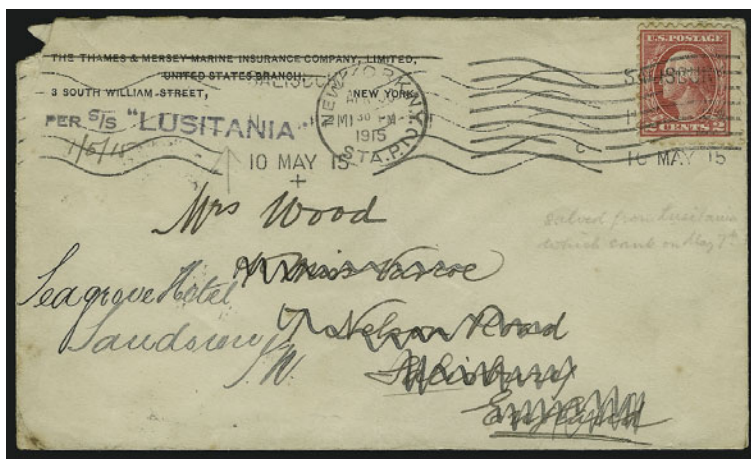 THE THAMES & MERSEY MARINE INSURANCE COMPANY, LIMITED,
UNITED STATES BRANCH,
3 SOUTH WILLIAM STREET, NEW YORK
PER S/S "LUSITANIA"
1/5/15
NEW YORK, N.Y.
APR 30
30 PM
1915
STA. P.
U.S. POSTAGE
CENTS 2
SALISBURY
10 MAY 15
+
SALISBURY
C
10 MAY 15
Mrs Wood
salved from Lusitania
which sank on May 7th
Seagrove Hotel
Nelson Road
Sandown
I W
Salisbury
England